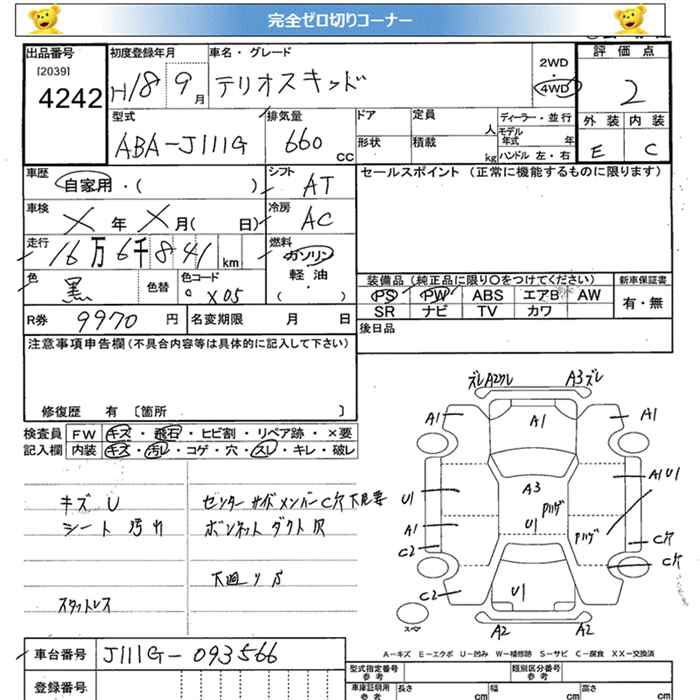 完全ゼロ切りコーナー
出品番号
[2039]
4242
初度登録年月
H18 9月
車名・グレード
テリオスキッド
2WD
・
4WD
評価点
2
外装 内装
E C
型式
ABA-J111G
排気量
660 cc
ドア
定員 人
形状
積載 kg
ディーラー・並行
モデル年式 年
ハンドル 左・右
車歴
自家用・( )
シフト
AT
セールスポイント (正常に機能するものに限ります)
車検
X年X月( 日)
冷房
AC
走行
16万6千841km
燃料
ガソリン
軽油
( ・ )
色
黒
色替
色コード
X05
装備品 (純正品に限り○をつけてください)
新車保証書
PS PW ABS エアB AW
SR ナビ TV カワ
有・無
R券 9970円
名変期限 月 日
後日品
注意事項申告欄 (不具合内容等は具体的に記入して下さい)
修復歴 有 〔箇所 〕
検査員記入欄
FW キズ・飛石・ヒビ割・リペア跡・×要
内装 キズ・汚レ・コゲ・穴・スレ・キレ・破レ
キズ U
シート 汚れ
スタットレス
センター サイドメンバー C穴 下見要
ボンネット ダクト 穴
下廻り サ
ズレ A2ワレ
A3 ズレ
A1
A1
A1
A3
U1
A1 U1
Pハゲ
A1
U1
Pハゲ
C穴
C2
C穴
C2
U1
A2
A2
スペア
A-キズ E-エクボ U-凹み W-補修跡 S-サビ C-腐食 XX-交換済
車台番号
J111G-093566
登録番号
型式指定番号
類別区分番号
車庫証明用
参考
長さ cm
幅 cm
高さ cm